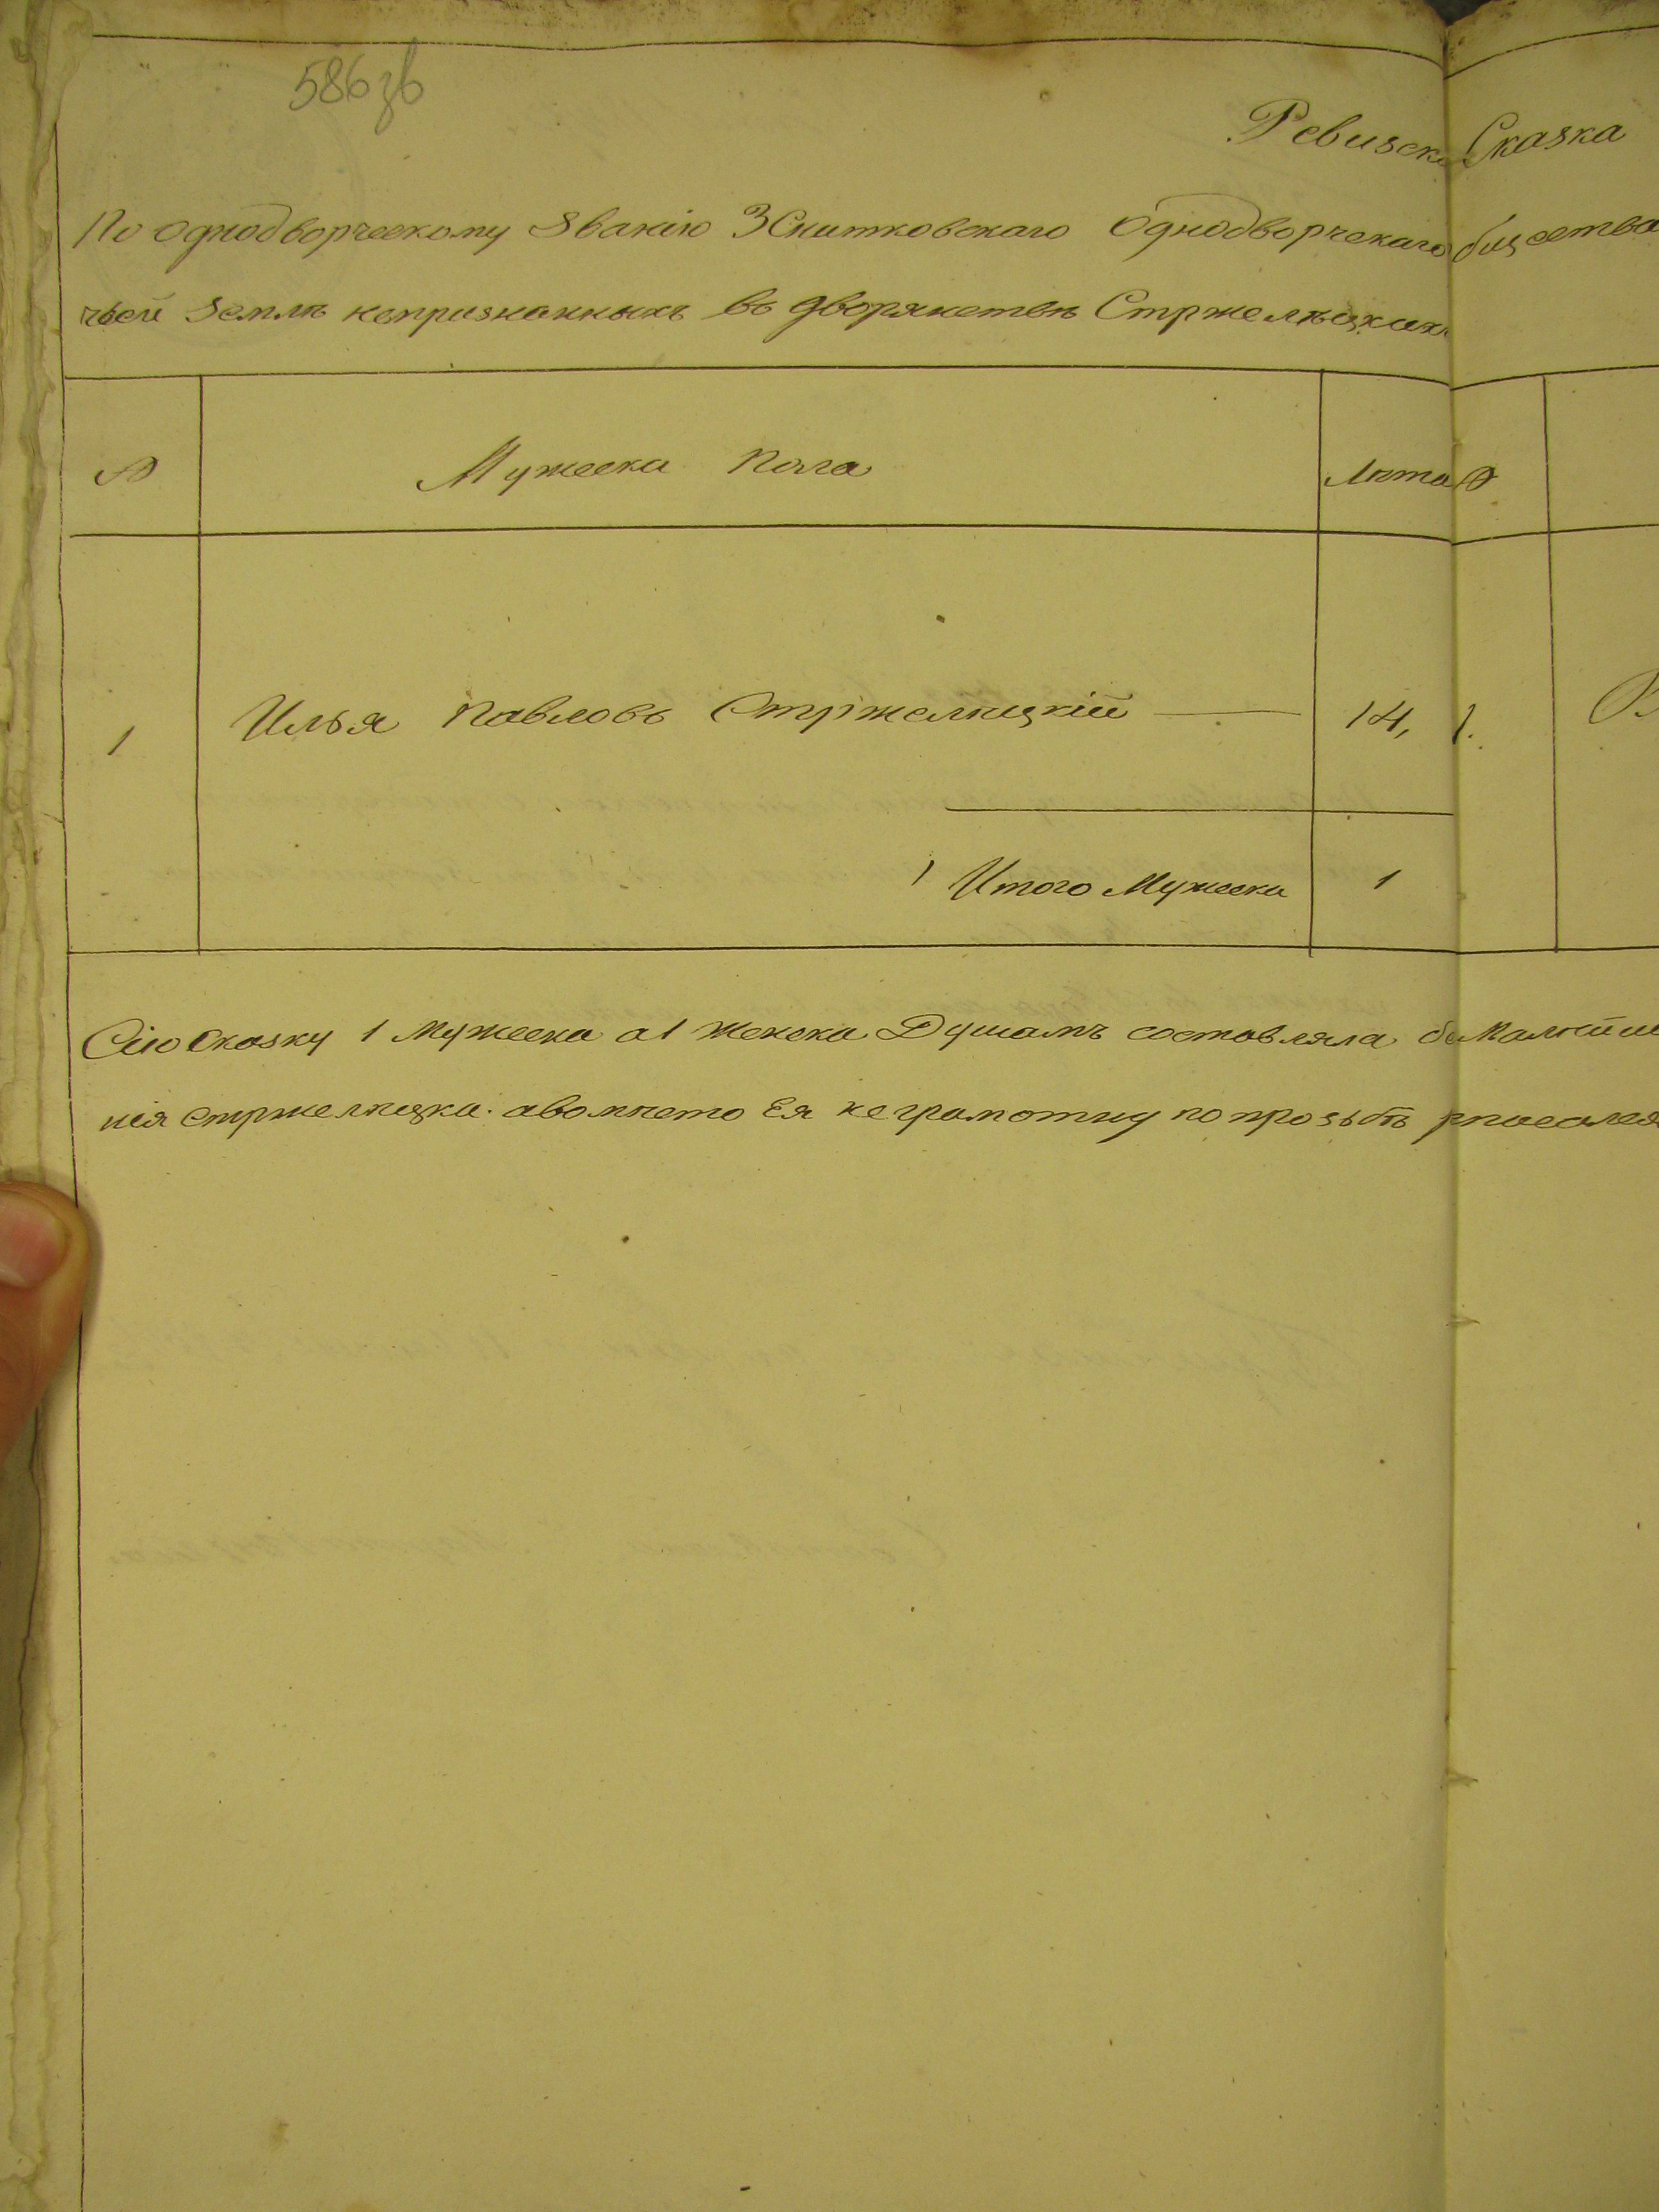 586 зв
Ревизск Сказка
По однодворческому званію З Снитковскаго Однодворческаго бщества
чьей землѣ непризнанныхъ въ дворянствѣ Стржелѣцких
№ Мужеска пола Лѣта №
1 Илья Павловъ Стржелѣцкій — 14, 1.
1 Итого Мужеска 1
Сію Сказку 1 мужеска а 1 женска Душамъ составляла
нія Стржелѣцка. авомѣсто Ея неграмотну по прозьбѣ